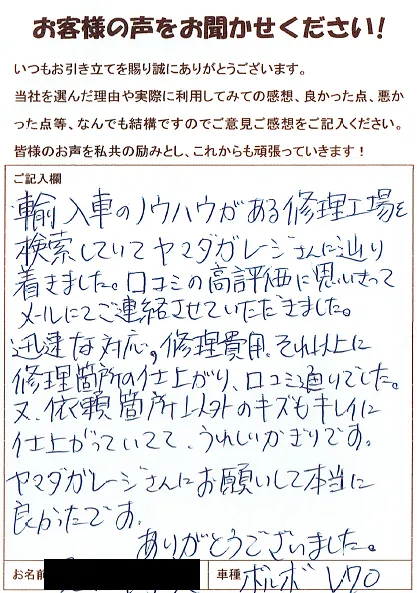 お客様の声をお聞かせください！
いつもお引き立てを賜り誠にありがとうございます。
当社を選んだ理由や実際に利用してみての感想、良かった点、悪か
った点等、なんでも結構ですのでご意見ご感想をご記入ください。
皆様のお声を私共の励みとし、これからも頑張っていきます！
ご記入欄
輸入車のノウハウがある修理工場を
検索していてヤマダガレージさんに辿り
着きました。口コミの高評価に思いきって
メールにてご連絡させていただきました。
迅速な対応。修理費用。それ以上に
修理箇所の仕上がり、口コミ通りでした。
又、依頼箇所以外のキズもキレイに
仕上がっていてて、うれしいかぎりです。
ヤマダガレージさんにお願いして本当に
良かったです。
ありがとうございました。
お名前 車種 ボルボ V70